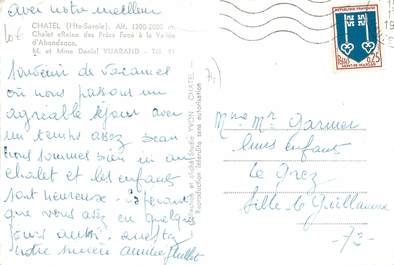 avec notre meilleur
CHATEL (Hte-Savoie), Alt. 1200-2000 m.
Chalet «Reine des Prés» Face à la Vallée
d'Abondance.
M. et Mme Daniel VUARAND - Tél. 91
Souvenir de vacances
où nous passons un
agréable séjour avec
un temps assez beau
nous sommes bien ici au
chalet et les enfants
sont heureux. Espérant
que vous avez eu quelque
jours aussi
notre sincère amitié
Studio YVON CHATEL
Reproduction interdite sans autorisation
REPUBLIQUE FRANCAISE
0,25
Mme Mr Garnier
leurs enfants
Le Grez
Sille le Guillaume
-72-